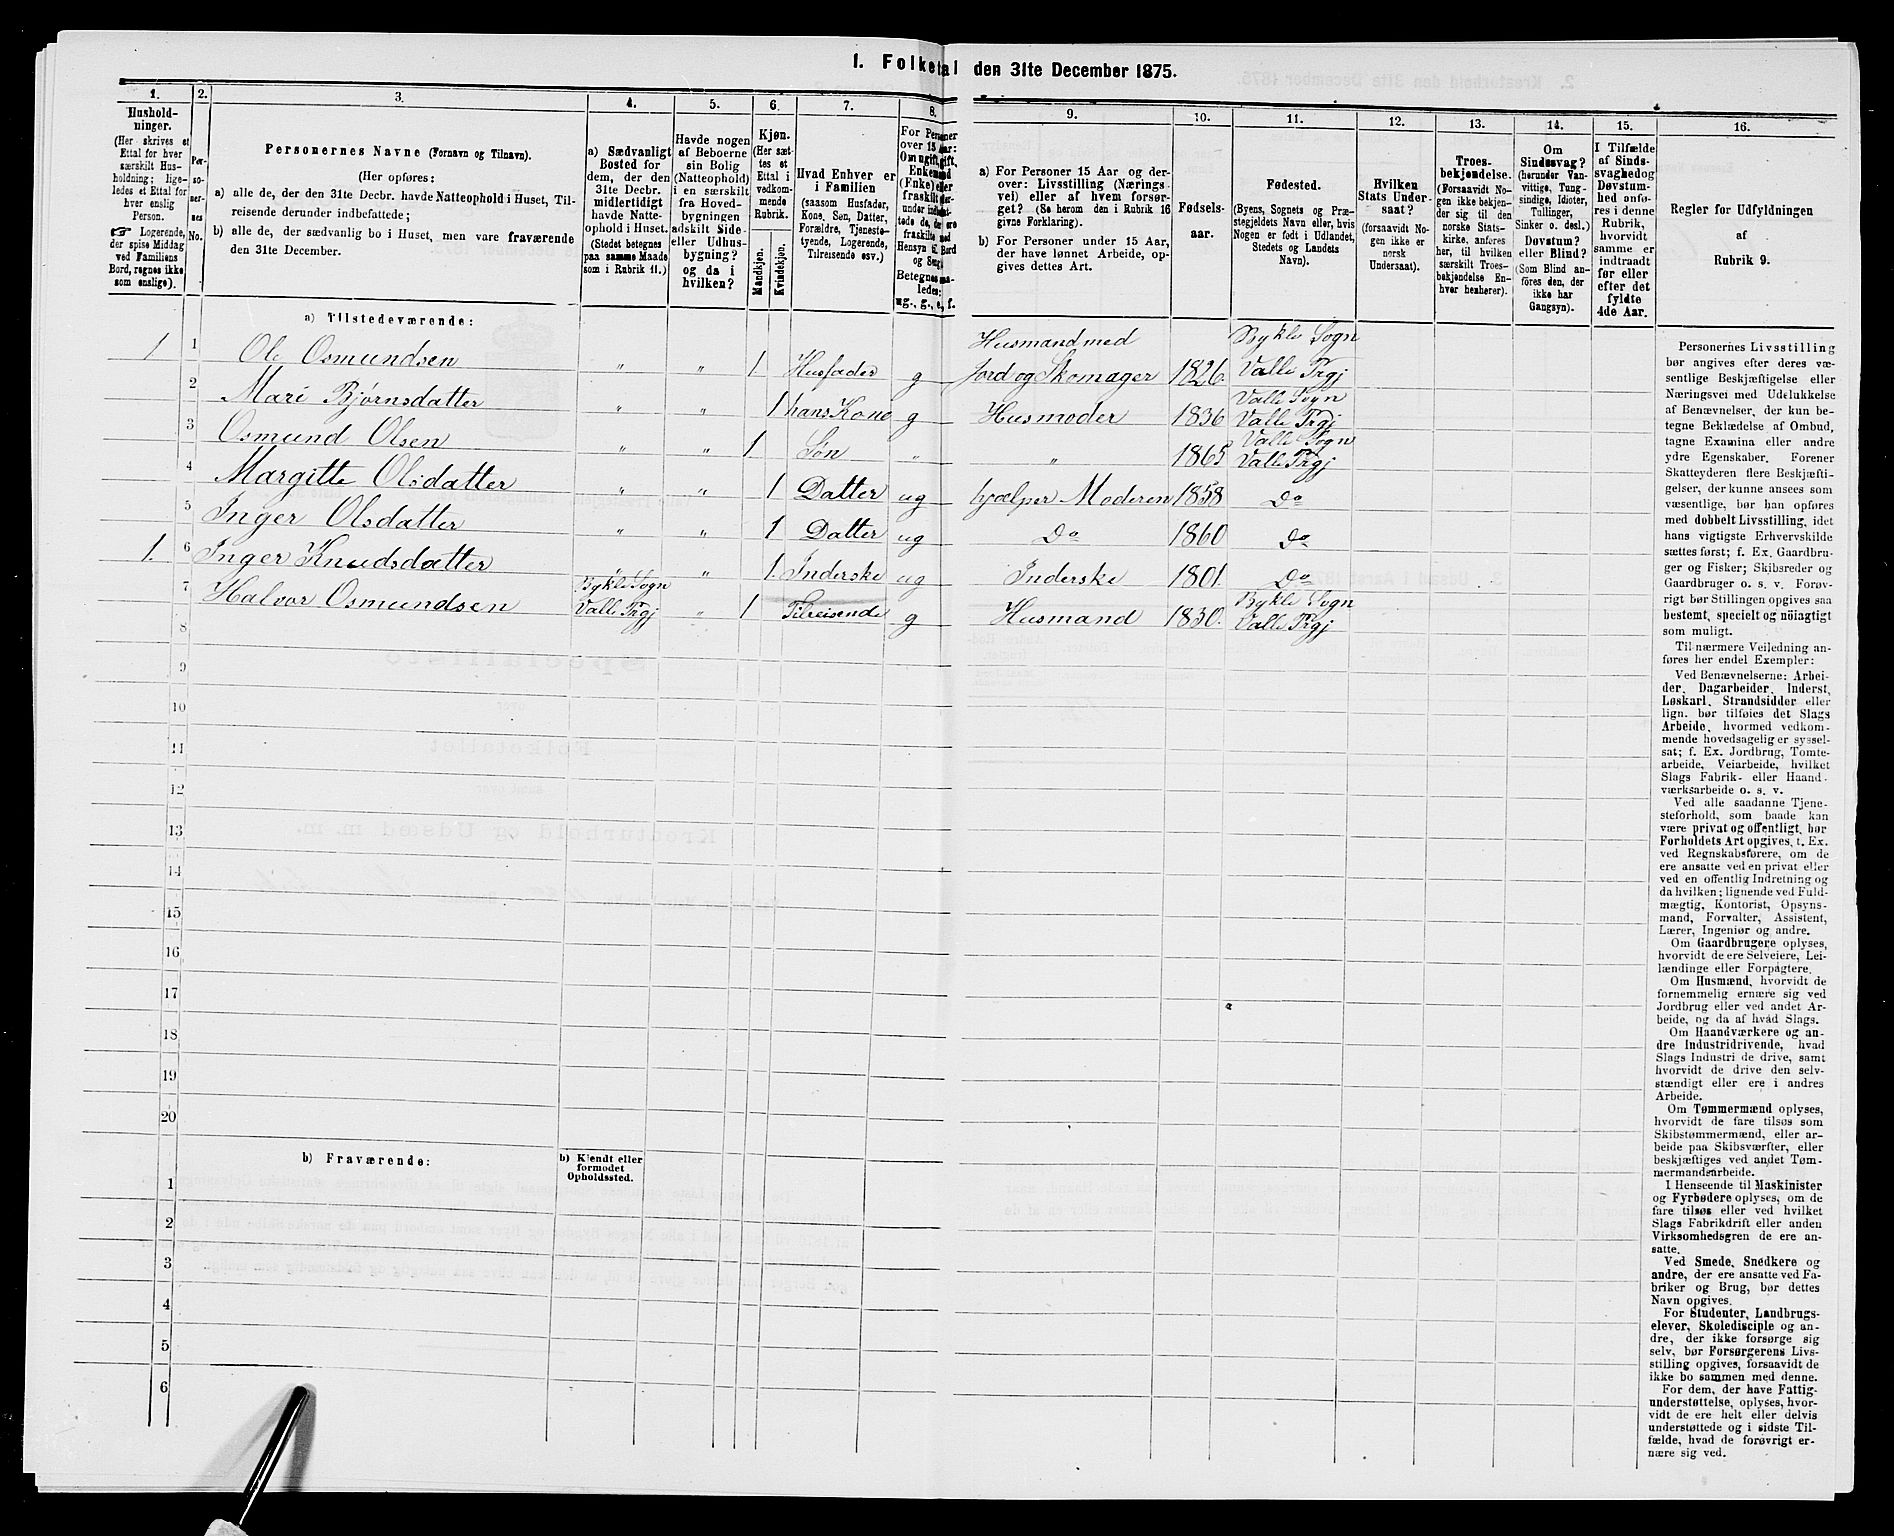 1. Folketal den 31te December 1875.
1. 2. 3. 4. 5. 6. 7. 8. 9. 10. 11. 12. 13. 14. 15. 16.
Hushold-
ninger.
(Her skrives et
Ettal for hver
særskilt Hus-
holdning; lige-
ledes et Ettal for
hver enslig
Person.
☞ Logerende,
der spise Middag
ved Familiens
Bord, regnes ikke
som enslige).
Per-
so-
ner-
nes
No.
Personernes Navne (Fornavn og Tilnavn).
(Her opføres:
a) alle de, der den 31te Decbr. havde Natteophold i Huset, Til-
reisende derunder indbefattede;
b) alle de, der sædvanlig bo i Huset, men vare fraværende
den 31te December.
a) Sædvanligt
Bosted for
dem, der den
31te Decbr.
midlertidigt
havde Natte-
ophold i Huset.
(Stedet betegnes
paa samme Maade
som i Rubrik 11.)
Havde nogen
af Beboerne
sin Bolig
(Natteophold)
i en særskilt
fra Hoved-
bygningen
adskilt Side-
eller Udhus-
bygning?
og da i
hvilken?
Kjøn.
(Her sæt-
tes et
Ettal i
vedkom-
mende
Rubrik.
Mandkjøn.
Kvindekjøn.
Hvad Enhver er
i Familien
(saasom Husfader,
Kone, Søn, Datter,
Forældre, Tjeneste-
tyende, Logerende,
Tilreisende osv.)
For Personer
over 15 Aar:
Om ugift, gift,
Enkemand
(Enke) eller
fraskilt
Betegnes
ledes:
ug., g., e., f.
a) For Personer 15 Aar og der-
over: Livsstilling (Nærings-
vei) eller af hvem forsør-
get? (Se herom den i Rubrik 16
givne Forklaring).
b) For Personer under 15 Aar,
der have lønnet Arbeide, op-
gives dettes Art.
Fødsels-
aar.
Fødested.
(Byens, Sognets og Præ-
stegjeldets Navn eller, hvis
Nogen er født i Udlandet,
Stedets og Landets
Navn).
Hvilken
Stats Under-
saat?
(forsaavidt No-
gen ikke er
norsk
Undersaat).
Troes-
bekjendelse.
(Forsaavidt No-
gen ikke bekjen-
der sig til den
norske Stats-
kirke, anføres
her, til hvilken
særskilt Troes-
bekjendelse En-
hver henhører).
Om
Sindssvag?
(herunder Van-
vittige, Tung-
sindige, Idioter,
Tullinger,
Sinker o. desl.)
Døvstum?
eller Blind?
(Som Blind an-
føres den, der
ikke har
Gangsyn).
I Tilfælde
af Sinds-
svaghed og
Døvstum-
hed anfø-
res i denne
Rubrik,
hvorvidt
samme er
indtraadt
før eller
efter det
fyldte
4de Aar.
Regler for Udfyldningen
af
Rubrik 9.
a) Tilstedeværende:
1 1 Ole Osmundsen " " 1 Husfader g Husmand med Jord og Skomager 1826 Bykle Sogn Valle Prgj
2 Mari Bjørnsdatter " " 1 hans Kone g Husmoder 1836 Valle Sogn Valle Prgj
3 Osmund Olsen " " 1 Søn " " 1865 Valle Sogn Valle Prgj
4 Margitte Olsdatter " " 1 Datter ug hjælper Moderen 1858 Do
5 Inger Olsdatter " " 1 Datter ug Do 1860 Do
1. 6 Inger Knudsdatter " " 1 Inderske ug Inderske 1801. Do
7 Halvor Osmundsen Bykle Sogn Valle Prgj " 1 Tilreisende g Husmand 1830. Bykle Sogn Valle Prgj
8
9
10
11
12
13
14
15
16
17
18
19
20
b) Fraværende:
b) Kjendt eller
formodet
Opholdssted.
1
2
3
4
5
6
Personernes Livsstilling
bør angives efter deres væ-
sentlige Beskjæftigelse eller
Næringsvei med Udelukkelse
af Benævnelser, der kun be-
tegne Beklædelse af Ombud,
tagne Examina eller andre
ydre Egenskaber. Forener
Skatteyderen flere Beskjæfti-
gelser, der kunne ansees som
væsentlige, bør han opføres
med dobbelt Livsstilling, idet
hans vigtigste Erhvervskilde
sættes først; f. Ex. Gaardbru-
ger og Fisker; Skibsreder og
Gaardbruger o. s. v. Forøv-
rigt bør Stillingen opgives saa
bestemt, specielt og nöiagtigt
som muligt.
Til nærmere Veiledning an-
føres her endel Exempler:
Ved Benævnelserne: Arbei-
der, Dagarbeider, Inderst,
Løskarl, Strandsidder eller
lign. bør tilføies det Slags
Arbeide, hvormed vedkom-
mende hovedsagelig er syssel-
sat; f. Ex. Jordbrug, Tomte-
arbeide, Veiarbeide, hvilket
Slags Fabrik- eller Haand-
værksarbeide o. s. v.
Ved alle saadanne Tjene-
steforhold, som baade kan
være privat og offentligt, bør
Forholdets Art opgives, t. Ex.
ved Regnskabsførere, om de
ere ansatte ved en privat eller
ved en offentlig Indretning og
da hvilken; lignende ved Fuld-
mægtig, Kontorist, Opsyns-
mand, Forvalter, Assistent,
Lærer, Ingeniør og andre.
Om Gaardbrugere oplyses,
hvorvidt de ere Selveiere, Lei-
lændinge eller Forpagtere.
Om Husmænd, hvorvidt de
fornemmelig ernære sig ved
Jordbrug eller ved andet Ar-
beide, og da af hvad Slags.
Om Haandværkere og an-
dre Industridrivende, hvad
Slags Industri de drive, samt
hvorvidt de drive den selv-
stændigt eller ere i andres
Arbeide.
Om Tømmermænd oplyses,
hvorvidt de fare tilsøs som
Skibstømmermænd, eller ar-
beide paa Skibsværfter, eller
beskjæftiges ved andet Tøm-
mermandsarbeide.
I Henseende til Maskinister
og Fyrbødere oplyses, om de
fare tilsøs eller ved hvilket
Slags Fabrikdrift eller anden
Virksomhedsgren de ere an-
satte.
Ved Smede, Snedkere og
andre, der ere ansatte ved Fa-
briker og Brug, bør dettes
Navn opgives.
For Studenter, Landbrugs-
elever, Skoledisciple og an-
dre, der ikke forsørge sig
selv, bør Forsørgerens Livs-
stilling opgives, forsaavidt de
ikke bo sammen med denne.
For dem, der have Fattig-
understøttelse, oplyses, hvor-
vidt de ere helt eller delvis
understøttede og i sidste Til-
fælde, hvad de forøvrigt er-
nære sig ved.